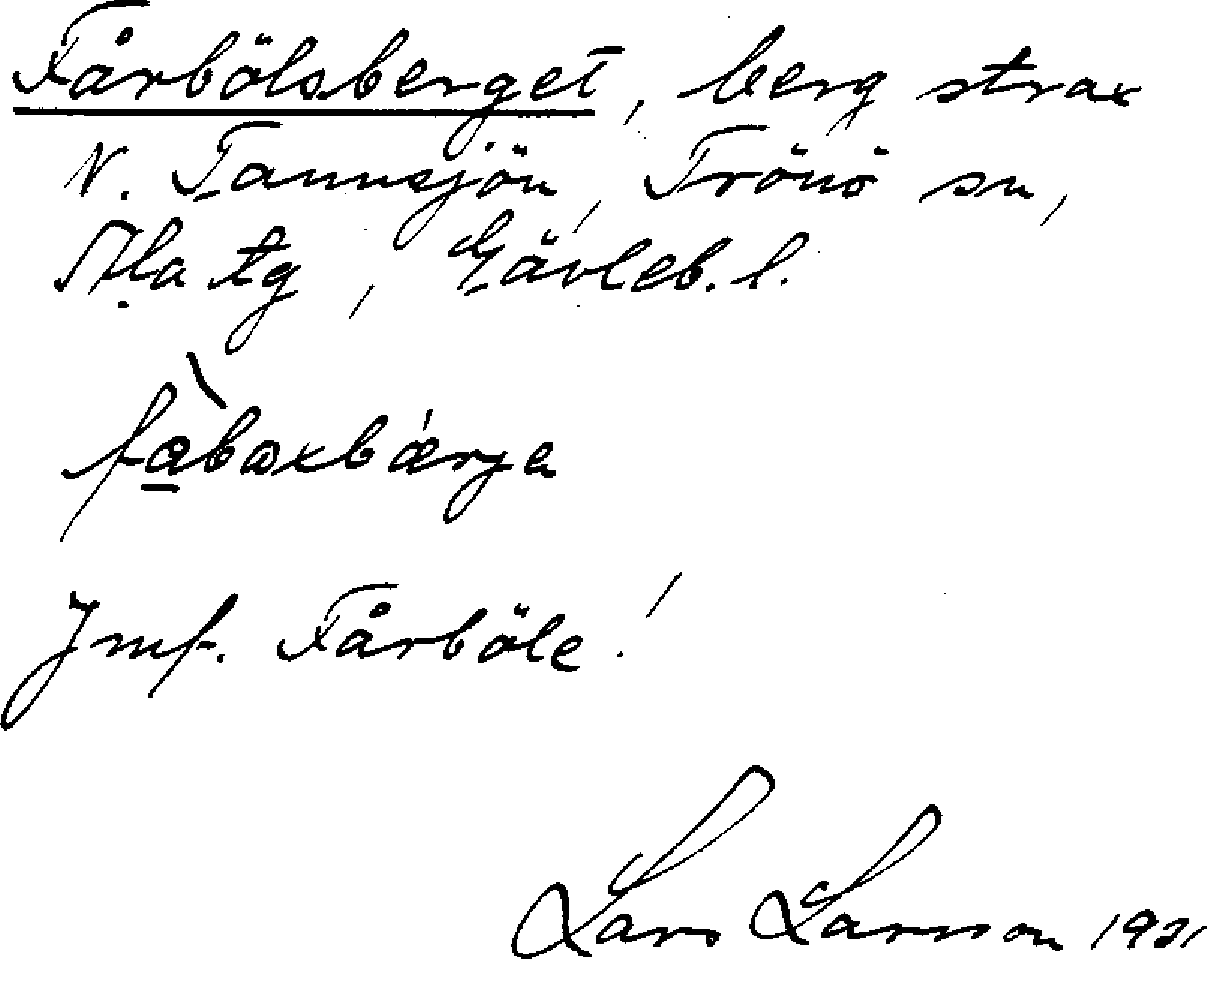 Fårbölsberget, berg strax
N. Tannsjön, Trönö sn,
Ala tg, Gävleb. l.
Jmf. Fårböle!
Lars Larsson 1931